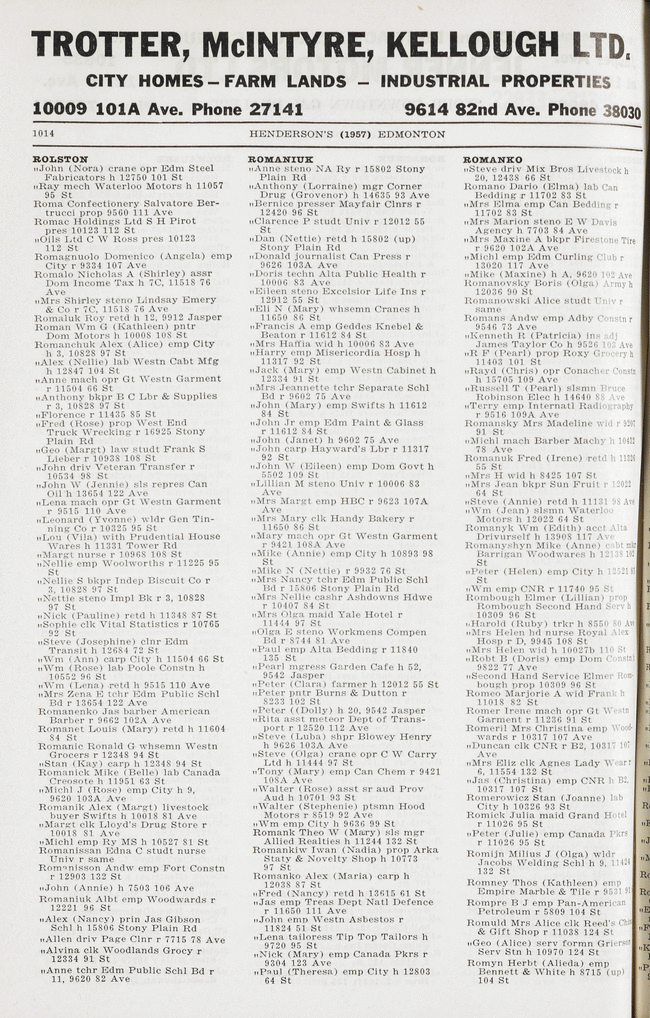 TROTTER, McINTYRE, KELLOUGH LTD.
CITY HOMES – FARM LANDS – INDUSTRIAL PROPERTIES
10009 101A Ave. Phone 27141 9614 82nd Ave. Phone 38030
1014 HENDERSON'S (1957) EDMONTON
ROLSTON
„John (Nora) crane opr Edm Steel
Fabricators h 12750 101 St
„Ray mech Waterloo Motors h 11057
95 St
Roma Confectionery Salvatore Ber-
trucci prop 9560 111 Ave
Romac Holdings Ltd S H Pirot
pres 10123 112 St
„Oils Ltd C W Ross pres 10123
112 St
Romagnuolo Domenico (Angela) emp
City r 9334 107 Ave
Romalo Nicholas A (Shirley) assr
Dom Income Tax h 7C, 11518 76
Ave
„Mrs Shirley steno Lindsay Emery
& Co r 7C, 11518 76 Ave
Romaluk Roy retd h 12, 9912 Jasper
Roman Wm G (Kathleen) pntr
Dom Motors h 10008 108 St
Romanchuk Alex (Alice) emp City
h 3, 10828 97 St
„Alex (Nellie) lab Westn Cabt Mfg
h 12847 104 St
„Anne mach opr Gt Westn Garment
r 11504 66 St
„Anthony bkpr B C Lbr & Supplies
r 3, 10828 97 St
„Florence r 11435 85 St
„Fred (Rose) prop West End
Truck Wrecking r 16925 Stony
Plain Rd
„Geo (Margt) law studt Frank S
Lieber r 10938 108 St
„John driv Veteran Transfer r
10534 98 St
„John W (Jennie) sls repres Can
Oil h 13654 122 Ave
„Lena mach opr Gt Westn Garment
r 9515 110 Ave
„Leonard (Yvonne) wldr Gen Tin-
ning Co r 10325 95 St
„Lou (Vila) with Prudential House
Wares h 11331 Tower Rd
„Margt nurse r 10968 108 St
„Nellie emp Woolworths r 11225 95
St
„Nellie S bkpr Indep Biscuit Co r
3, 10828 97 St
„Nettie steno Impl Bk r 3, 10828
97 St
„Nick (Pauline) retd h 11348 87 St
„Sophie clk Vital Statistics r 10765
92 St
„Steve (Josephine) clnr Edm
Transit h 12684 72 St
„Wm (Ann) carp City h 11504 66 St
„Wm (Rose) lab Poole Constn h
10552 96 St
„Wm (Lena) retd h 9515 110 Ave
„Mrs Zena E tchr Edm Public Schl
Bd r 13654 122 Ave
Romanenko Jas barber American
Barber r 9662 102A Ave
Romanet Louis (Mary) retd h 11604
84 St
Romanic Ronald G whsemn Westn
Grocers r 12348 94 St
„Stan (Kay) carp h 12348 94 St
Romanick Mike (Belle) lab Canada
Creosote h 11951 63 St
„Michl J (Rose) emp City h 9,
9620 103A Ave
Romanik Alex (Margt) livestock
buyer Swifts h 10018 81 Ave
„Margt clk Lloyd's Drug Store r
10018 81 Ave
„Michl emp Ry MS h 10527 81 St
Romanissan Edna C studt nurse
Univ r same
Romanisson Andw emp Fort Constn
r 12903 132 St
„John (Annie) h 7503 106 Ave
Romaniuk Albt emp Woodwards r
12221 96 St
„Alex (Nancy) prin Jas Gibson
Schl h 15806 Stony Plain Rd
„Allen driv Page Clnr r 7715 78 Ave
„Alvina clk Woodlands Grocy r
12334 91 St
„Anne tchr Edm Public Schl Bd r
11, 9620 82 Ave
ROMANIUK
„Anne steno NA Ry r 15802 Stony
Plain Rd
„Anthony (Lorraine) mgr Corner
Drug (Grovenor) h 14635 93 Ave
„Bernice presser Mayfair Clnrs r
12420 96 St
„Clarence P studt Univ r 12012 55
St
„Dan (Nettie) retd h 15802 (up)
Stony Plain Rd
„Donald journalist Can Press r
9626 103A Ave
„Doris techn Alta Public Health r
10006 83 Ave
„Eileen steno Excelsior Life Ins r
12912 55 St
„Eli N (Mary) whsemn Cranes h
11650 86 St
„Francis A emp Geddes Knebel &
Beaton r 11612 84 St
„Mrs Haffia wid h 10006 83 Ave
„Harry emp Misericordia Hosp h
11317 92 St
„Jack (Mary) emp Westn Cabinet h
12334 91 St
„Mrs Jeannette tchr Separate Schl
Bd r 9602 75 Ave
„John (Mary) emp Swifts h 11612
84 St
„John Jr emp Edm Paint & Glass
r 11612 84 St
„John (Janet) h 9602 75 Ave
„John carp Hayward's Lbr r 11317
92 St
„John W (Eileen) emp Dom Govt h
5502 109 St
„Lillian M steno Univ r 10006 83
Ave
„Mrs Margt emp HBC r 9623 107A
Ave
„Mrs Mary clk Handy Bakery r
11650 86 St
„Mary mach opr Gt Westn Garment
r 9421 108A Ave
„Mike (Annie) emp City h 10893 98
St
„Mike N (Nettie) r 9932 76 St
„Mrs Nancy tchr Edm Public Schl
Bd r 15806 Stony Plain Rd
„Mrs Nellie cashr Ashdowns Hdwe
r 10407 84 St
„Mrs Olga maid Yale Hotel r
11444 97 St
„Olga E steno Workmens Compen
Bd r 8744 81 Ave
„Paul emp Alta Bedding r 11840
135 St
„Pearl mgress Garden Cafe h 52,
9542 Jasper
„Peter (Clara) farmer h 12012 55 St
„Peter pntr Burns & Dutton r
8233 102 St
„Peter ((Dolly) h 20, 9542 Jasper
„Rita asst meteor Dept of Trans-
port r 12520 112 Ave
„Steve (Luba) shpr Blowey Henry
h 9626 103A Ave
„Steve (Olga) crane opr C W Carry
Ltd h 11444 97 St
„Tony (Mary) emp Can Chem r 9421
108A Ave
„Walter (Rose) asst sr aud Prov
Aud h 10701 93 St
„Walter (Stephenie) ptsmn Hood
Motors r 8519 92 Ave
„Wm emp City h 9636 99 St
Romank Theo W (Mary) sls mgr
Allied Realties h 11244 132 St
Romankiw Iwan (Nadia) prop Arka
Staty & Novelty Shop h 10773
97 St
Romanko Alex (Maria) carp h
12038 87 St
„Fred (Nancy) retd h 13615 61 St
„Jas emp Treas Dept Natl Defence
r 11650 111 Ave
„John emp Westn Asbestos r
11824 51 St
„Lena tailoress Tip Top Tailors h
9720 95 St
„Nick (Mary) emp Canada Pkrs r
9304 123 Ave
„Paul (Theresa) emp City h 12803
64 St
ROMANKO
„Steve driv Mix Bros Livestock h
20, 12438 66 St
Romano Dario (Elma) lab Can
Bedding r 11702 83 St
„Mrs Elma emp Can Bedding r
11702 83 St
„Mrs Marion steno E W Davis
Agency h 7703 84 Ave
„Mrs Maxine A bkpr Firestone Tire
r 9620 102A Ave
„Michl emp Edm Curling Club r
13020 117 Ave
„Mike (Maxine) h A, 9620 102 Ave
Romanovsky Boris (Olga) Army h
12036 90 St
Romanowski Alice studt Univ r
same
Romans Andw emp Adby Constn r
9546 73 Ave
„Kenneth R (Patricia) ins adj
James Taylor Co h 9526 103 Ave
„R F (Pearl) prop Roxy Grocery h
11403 101 St
„Rayd (Chris) opr Conacher Constn
h 15705 109 Ave
„Russell T (Pearl) slsmn Bruce
Robinson Elec h 14640 88 Ave
„Terry emp Internatl Radiography
r 9516 109A Ave
Romansky Mrs Madeline wid r 9207
91 St
„Michl mach Barber Machy h 10422
78 Ave
Romanuk Fred (Irene) retd h 11326
55 St
„Mrs H wid h 8425 107 St
„Mrs Jean bkpr Sun Fruit r 12022
64 St
„Steve (Annie) retd h 11131 98 Ave
„Wm (Jean) slsmn Waterloo
Motors h 12022 64 St
Romanyk Wm (Edith) acct Alta
Drivurself h 13908 117 Ave
Romanyshyn Mike (Anne) cabt mkr
Barrigan Woodwares h 12138
St
„Peter (Helen) emp City h 13521
St
„Wm emp CNR r 11740 95 St
Rombough Elmer (Lillian) prop
Rombough Second Hand Serv h
10309 96 St
„Harold (Ruby) trkr h 8550 80 Ave
„Mrs Helen hd nurse Royal Alex
Hosp r D, 9945 108 St
„Mrs Helen wid h 10027b 110 St
„Robt B (Doris) emp Dom Constn
9822 77 Ave
„Second Hand Service Elmer Rom-
bough prop 10309 96 St
Romeo Marjorie A wid Frank h
11018 82 St
Romer Irene mach opr Gt Westn
Garment r 11236 91 St
Romeril Mrs Christina emp Wood-
wards r 10317 107 Ave
„Duncan clk CNR r B2, 10317 107
Ave
„Mrs Eliz clk Agnes Lady Wear r
6, 11554 132 St
„Jas (Christina) emp CNR h B2,
10317 107 St
Romerowicz Stan (Joanne) lab
City h 10326 93 St
Romick Julia maid Grand Hotel
r 11026 95 St
„Peter (Julie) emp Canada Pkrs
r 11026 95 St
Romijn Milius J (Olga) wldr
Jacobs Welding Schl h 9, 11424
132 St
Romney Thos (Kathleen) emp
Empire Marble & Tile r 9531
Rompre B J emp Pan-American
Petroleum r 5809 104 St
Romuld Mrs Alice clk Reed's
& Gift Shop r 11038 124 St
„Geo (Alice) serv formn Grierson
Serv Stn h 10970 124 St
Romyn Herbt (Alieda) emp
Bennett & White h 8715 (up)
104 St